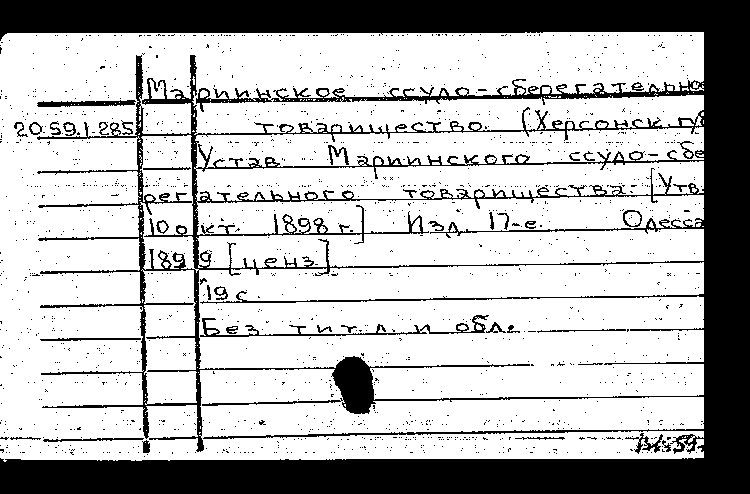 Мариинское ссудо-сберегательное
20.59.1.285 товарищество. (Херсонск. губ
Устав Мариинского ссудо-сбе
регательного товарищества. [Утв.
10 окт. 1898 г.] Изд. 17-е. Одесса
1899 [ценз].
19 с.
Без тит. л. и обл.